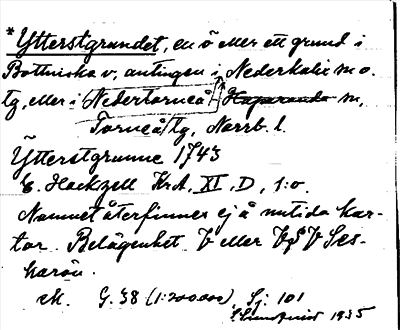 *Ytterstgrundet, en ö eller ett grund i
Bottniska v, antingen i Nederkalix m o.
tg, eller i Nedertorneå Haparanda m,
Torneå tg, Norrb. l.
Ytterstgrunne 1743
E. Hackzell KrA, XI, D, 1:o.
Namnet återfinnes ej å nutida kar-
tor. Belägenhet V eller VSV Ses-
karön.
G. 38 (1:200000), Sj. 101
1935